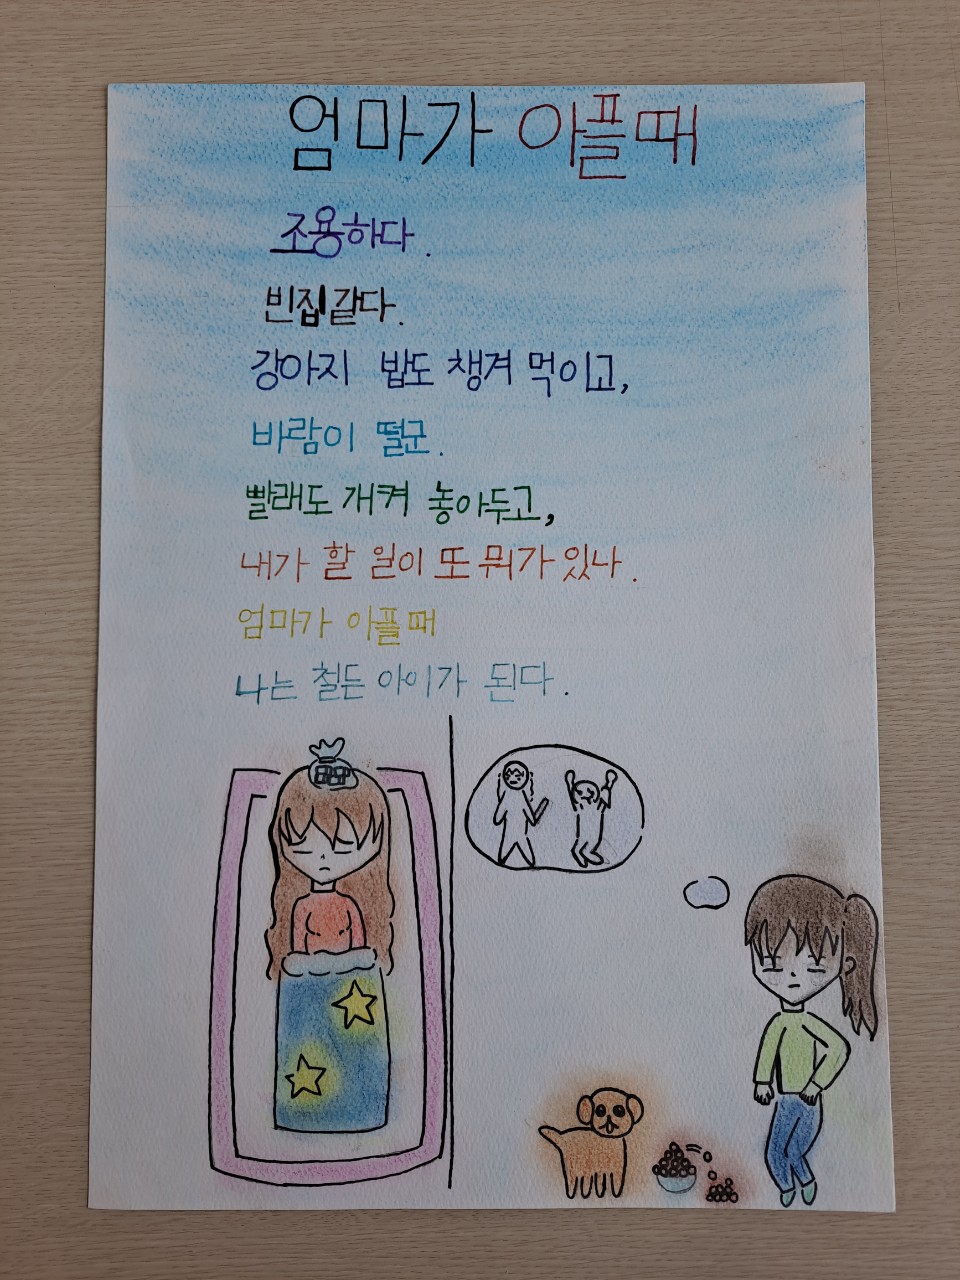 엄마가 아플때
조용하다.
빈집같다.
강아지 밥도 챙겨 먹이고,
바람이 떨군.
빨래도 개켜 놓아두고,
내가 할 일이 또 뭐가 있나.
엄마가 아플때
나는 철든 아이가 된다.